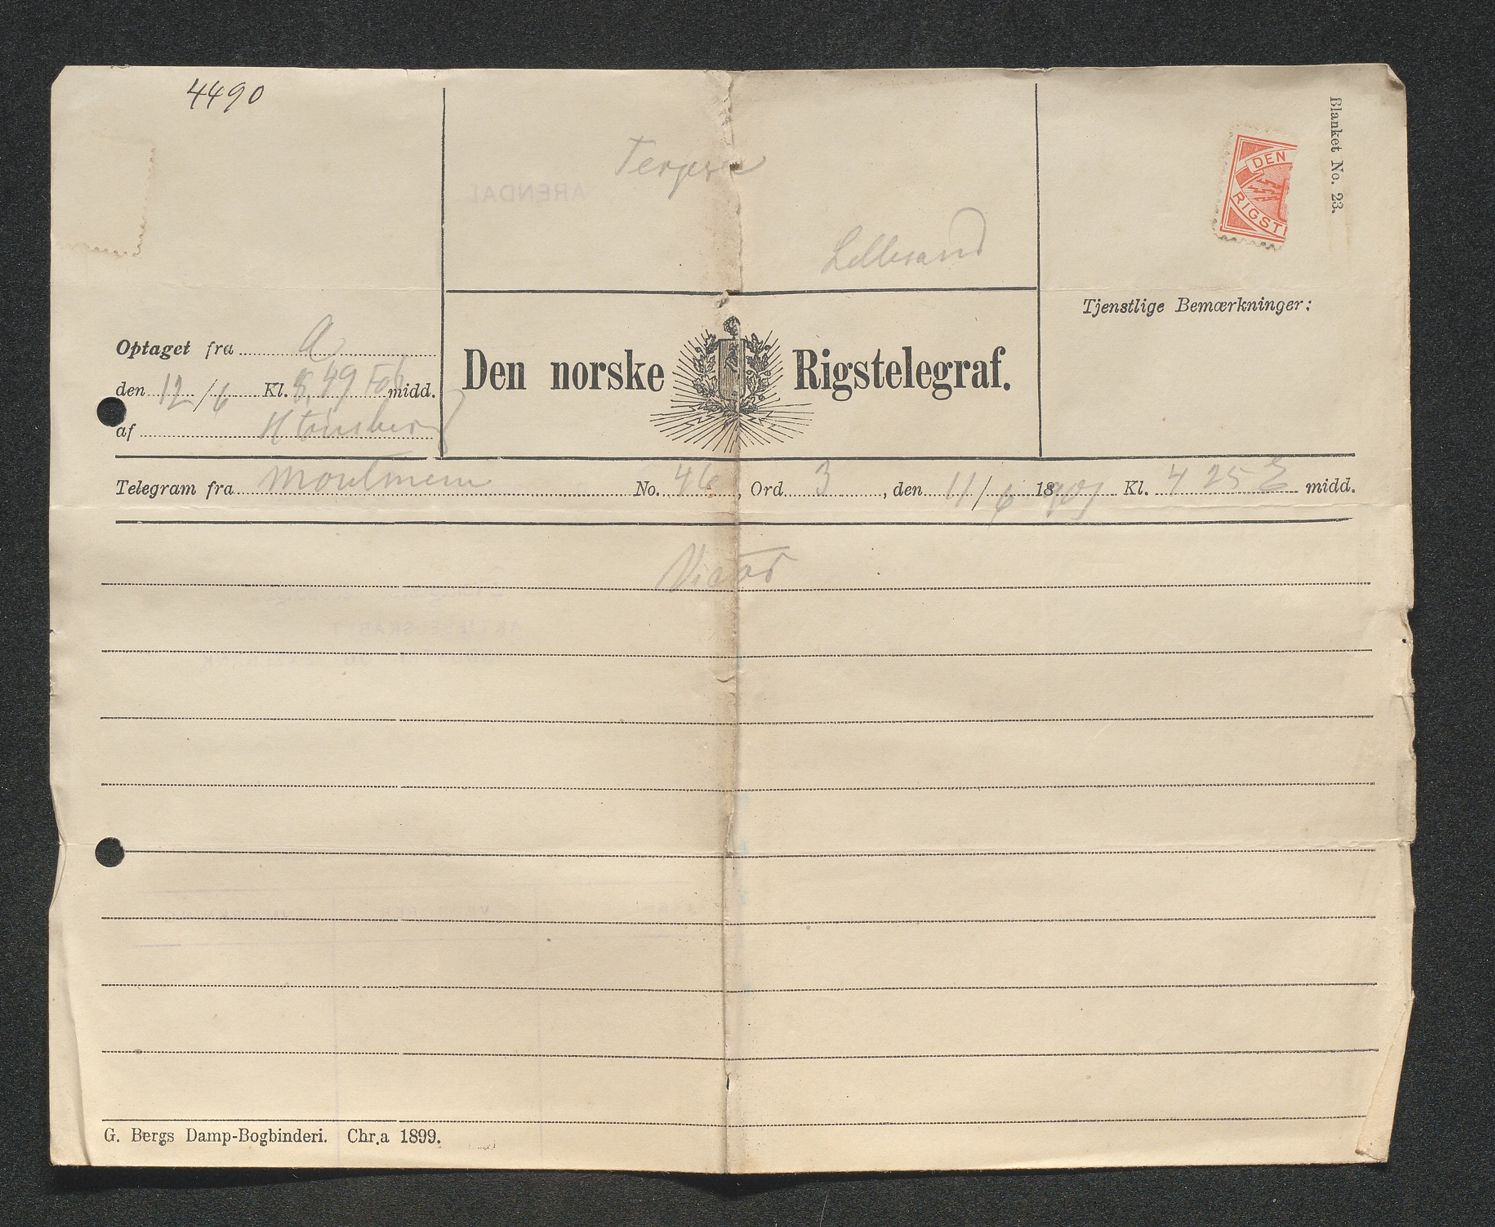 4490
Blanket No. 23.
DEN
RIGST
Lillesand
Tjenstlige Bemærkninger:
Optaget fra A
den 12/6 Kl. 8,49 Fm midd.
af
Den norske Rigstelegraf.
Telegram fra Moulmein No. 46, Ord 3, den 11/6 18 Kl. 4 25 E midd.
Victor
G. Bergs Damp-Bogbinderi. Chr.a 1899.